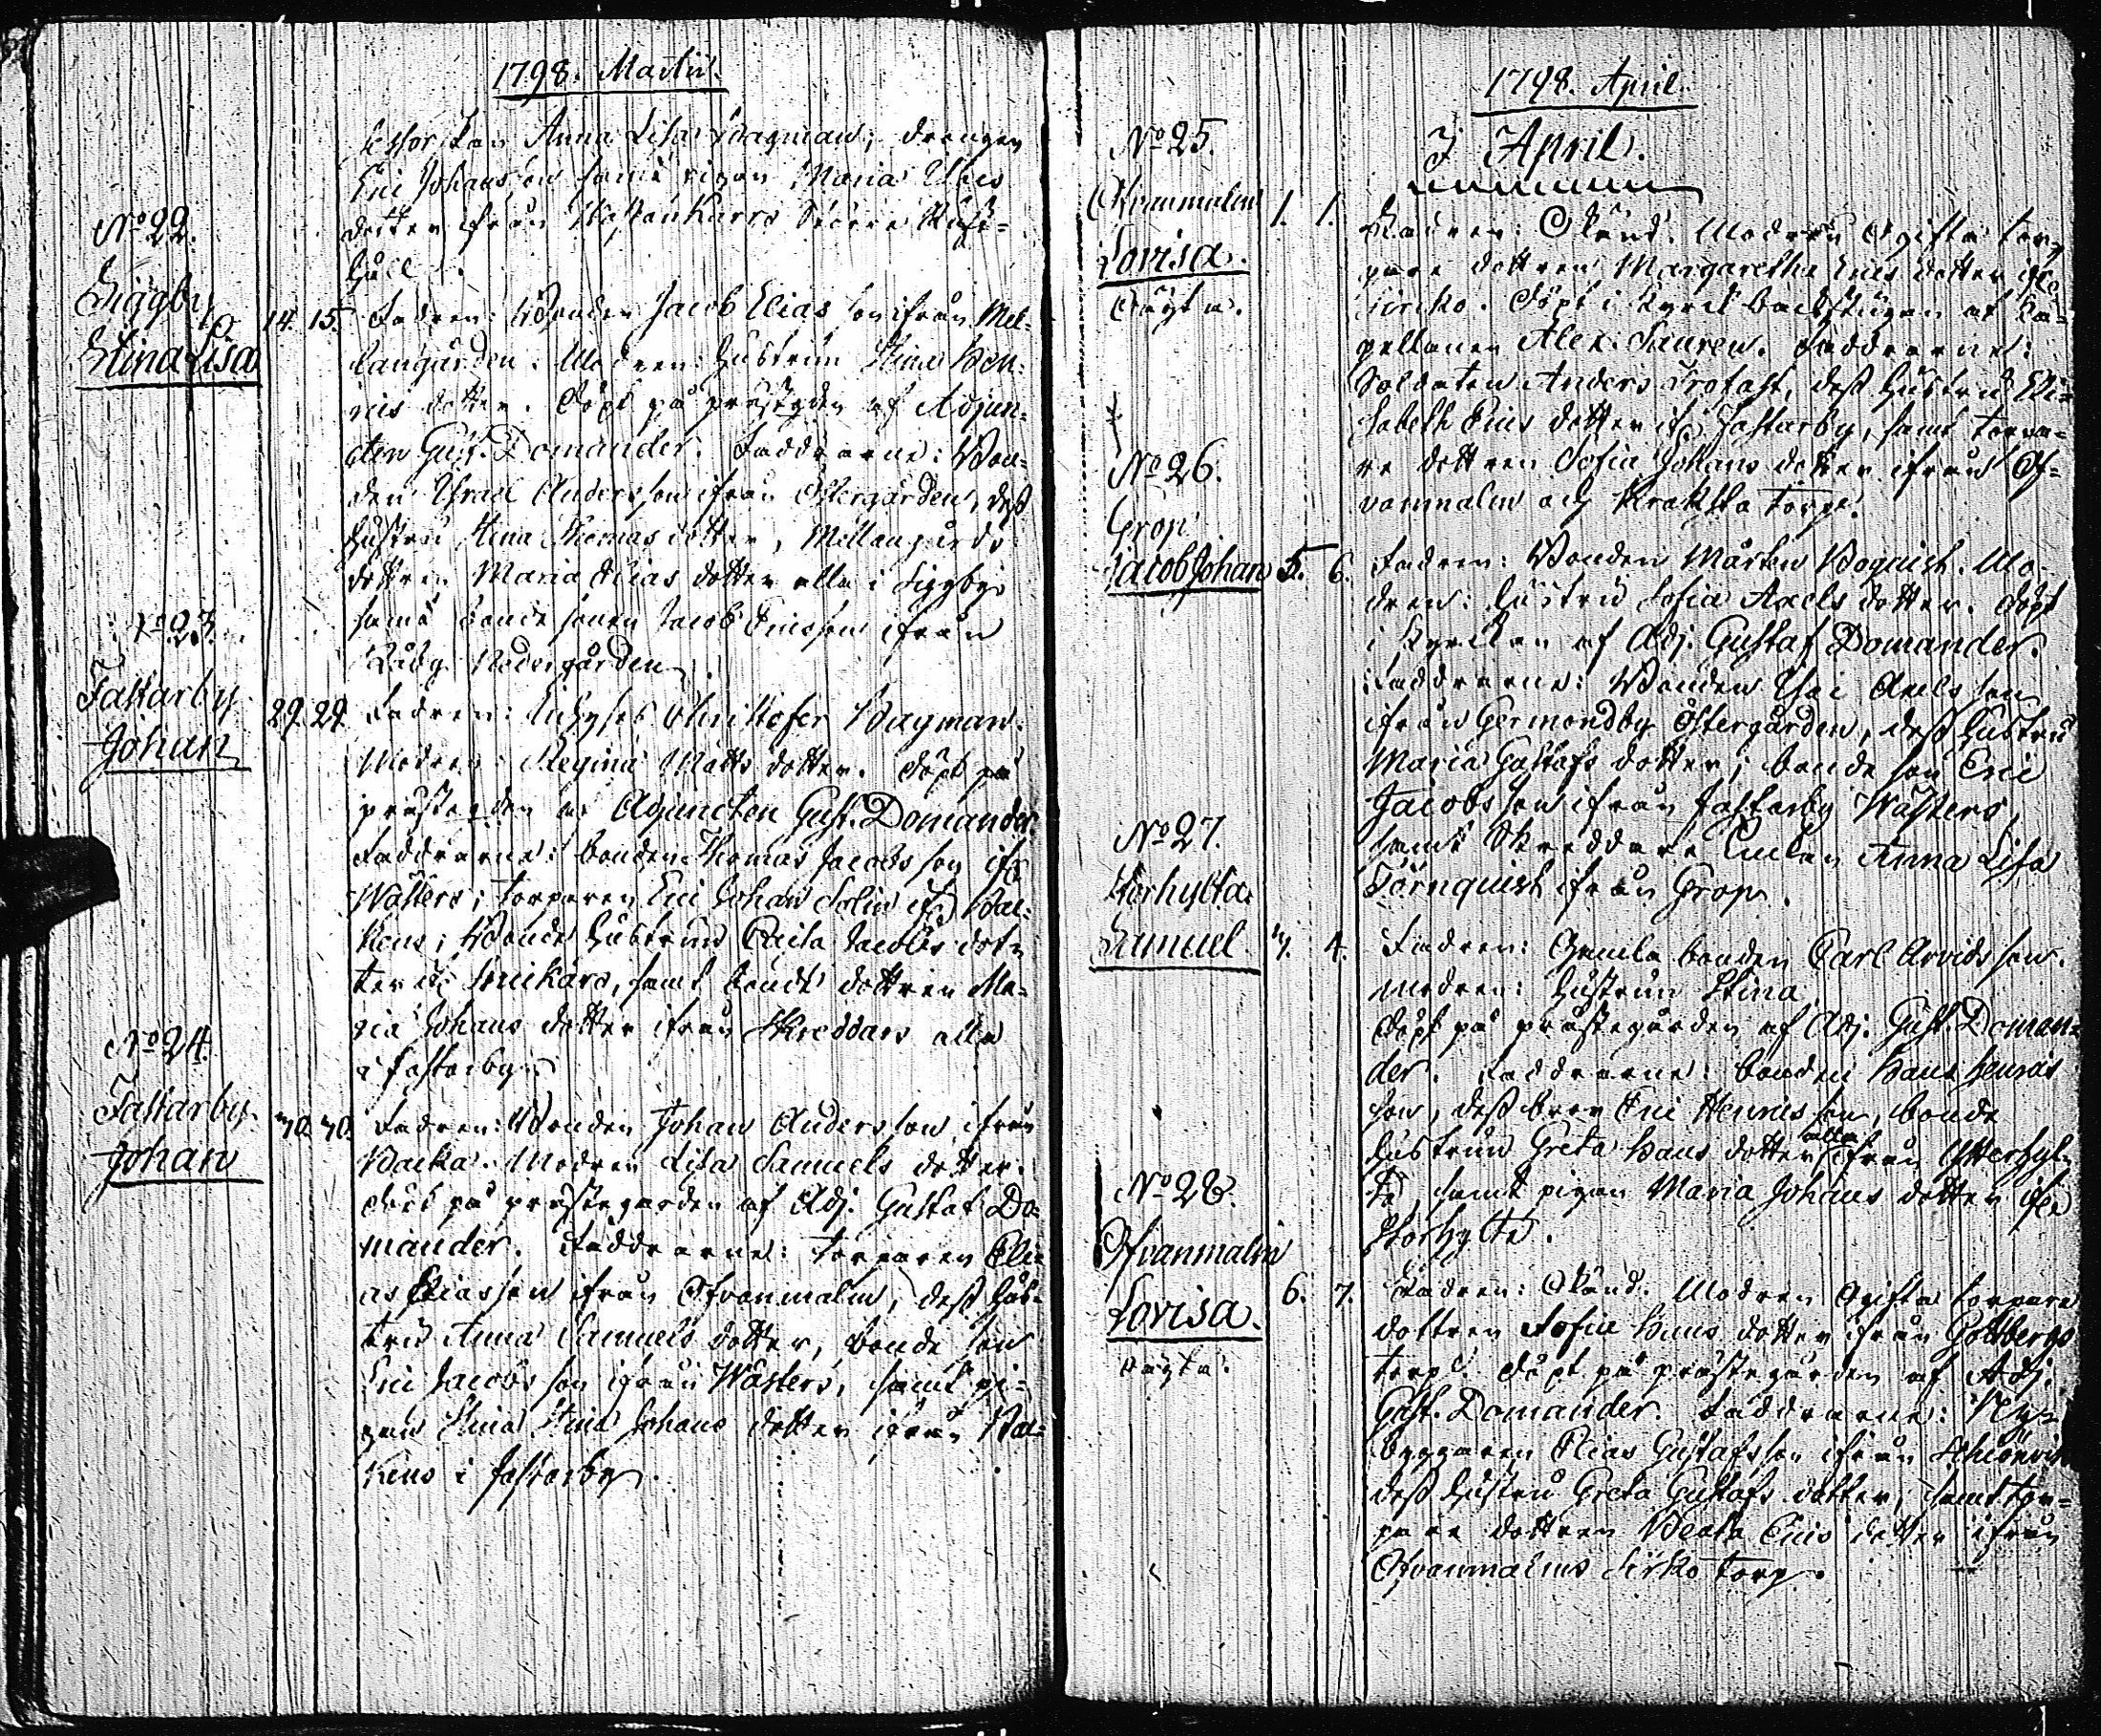 1798. Martii.
Anna Lisa Wagman, drengen
Eric Johansson samt pigan Maria
dotter ifrån
hull.
No 22.
Siggby
Stina Lisa
14. 15. Fadren: Bonden Jacob Elias son ifrån Mel-
langården. Modren: hustrun Stina Hen-
rics dotter. Döpt på prästgden af Adjun-
cten Gust. Domander. Faddrarne: Bon-
den Israel Andersson ifrån Östergården, dess
hustru Stina Thomas dotter, Mellangårds
dottren Maria Elias dotter alla i Siggby
samt bonde sonen Jacob Ericsson ifrån
Nedergården.
No 23.
Fastarby
Johan
29. 29. Fadren: Christofer Bagman.
Modren: Regina Matts dotter. Döpt på
prästegden af Adjuncten Gust. Domander.
Faddrarne: bonden Thomas Jacobs son ifr.
Wästers; torparen Eric Johan Solin ifr. Bac-
kens; Bonde hustrun Caisa Jacobs dot-
ter ifr. Smikärs, samt bonde dottren Ma-
ria Johans dotter ifrån Skreddars alla
i Fastarby.
No 24.
Fastarby
Johan
30. 30. Fadren: Bonden Johan Andersson ifrån
Backa. Modren Lisa Samuels dotter.
Döpt på prästegården af Adj. Gustaf Do-
mander. Faddrarne: torparen Eli-
as Eliasson ifrån Ofvanmalm, dess hus-
tru Anna Samuels dotter, bonde son
Eric Jacobs son ifrån Wästers, samt pi-
gan Stina Stina Johans dotter ifrån Bac-
kens i Fastarby.
1798. April.
I April.
No 25.
Ofvanmalm
Lovisa.
oägta.
1. 1. Fadren: Okänd. Modren Ogifta torp
pare dottren Margaretha Erics dotter ifr.
Sirsko. Döpt i Kyrck backstugan af Ca-
pellanen Alex. Lauren. Faddrarne:
Soldaten Anders Trofast, dess hustru Eli-
sabeth Erics dotter ifr. Fastarby, samt torpa-
re dottren Sofia Johans dotter ifrån Of-
vanmalm och Kraksta torp.
No 26.
Grop
Jacob Johan
5. 6. Fadren: Bonden Mårten Boquist. Mo-
dren: hustru Sofia Axels dotter. Döpt
i Kyrckan af Adj. Gustaf Domander.
Faddrarne: Bonden Isac Axels son
ifrån Germondby Östergården, dess hustru
Maria Gustafs dotter; bonde son Eric
Jacobs son ifrån Fastarby Wästers,
samt Skreddare Enckan Anna Lisa
Törnquist ifrån Grop.
No 27.
Storhylta.
Samuel
3. 4. Fadren: Gamla bonden Carl Arvids son.
Modren: hustrun Stina
Döpt på prästegården af Adj. Gust. Doman-
der. Faddrarne: bonden Hans Henrics
son, dess bror Eric Henrics son, bonde
hustrun Greta Hans dotter alla ifrån Ytterhyl-
ta, samt pigan Maria Johans dotter ifr.
Storhylta.
No 28.
Ofvanmalm
Lovisa.
oägta.
6. 7. Fadren: Okänd. Modren Ogifta torpare
dottren Sofia Hans dotter ifrån Gottbergs
torp. Döpt på prästegården af Adj.
Gust. Domander. Faddrarne: Ny-
byggaren Elias Gustafsson ifrån
dess hustru Greta Gustafs dotter, samt tor-
pare dottren Beata Erics dotter ifrån
Ofvanmalms Sirsko torp.